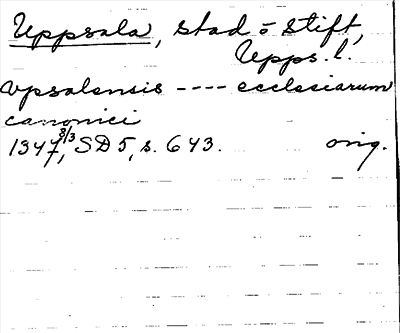 Uppsala, stad o stift,
Upps. l.
vpsalensis ---- ecclesiarum
canonici
1347 8/3, SD 5, s. 643. orig.